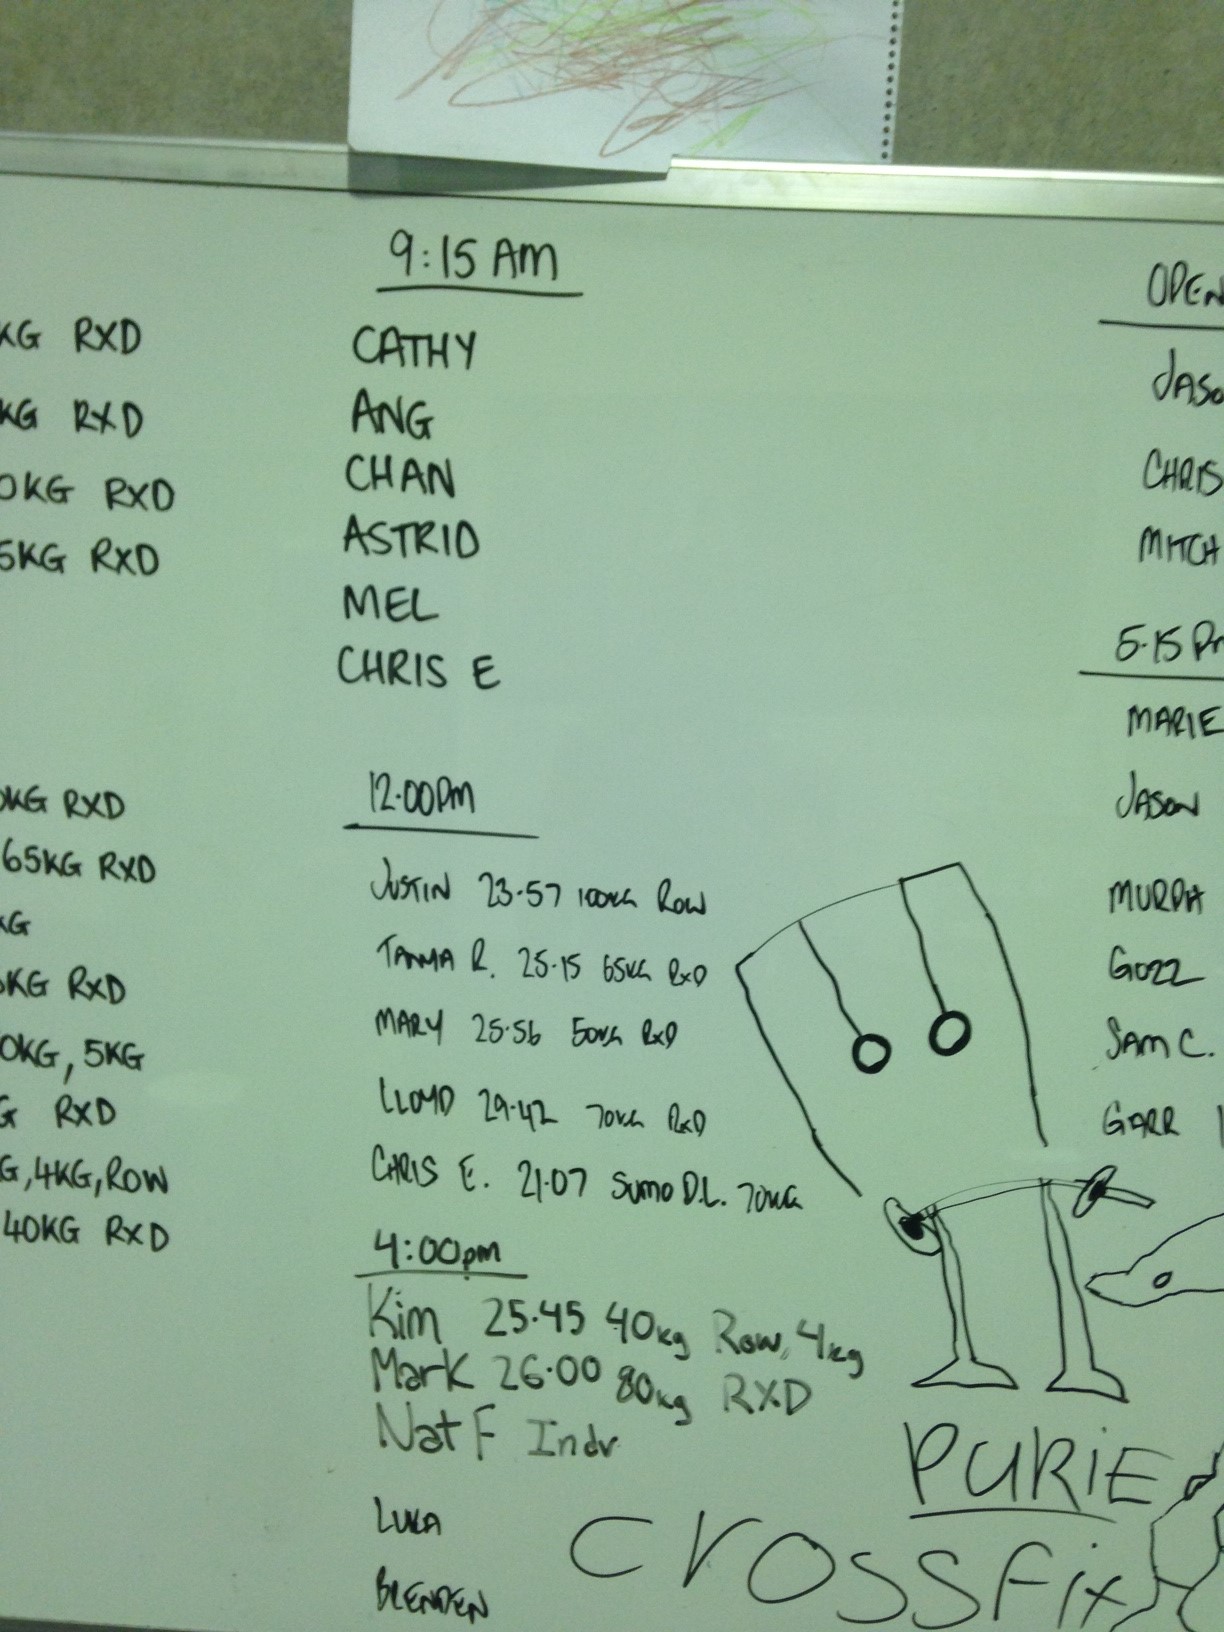 KG RXD
KG RXD
0KG RXD
5KG RXD
0KG RXD
65KG RXD
KG
KG RXD
0KG, 5KG
G RXD
G, 4KG, ROW
40KG RXD
9:15 AM
CATHY
ANG
CHAN
ASTRID
MEL
CHRIS E
12.00PM
JUSTIN 23.57 100KG ROW
TANIA R. 25.15 65KG RXD
MARY 25.56 50KG RXD
LLOYD 29.42 70KG RXD
CHRIS E. 21.07 SUMO D.L. 70KG
4:00pm
Kim 25.45 40kg Row, 4kg
Mark 26.00 80kg RXD
Nat F Indr
LUKA
BRENDEN
OPEN
JASO
CHRIS
MITCH
5.15 PM
MARIE
JASON
MURPH
GOZZ
SAM C.
GARR
PURIE
crossfix